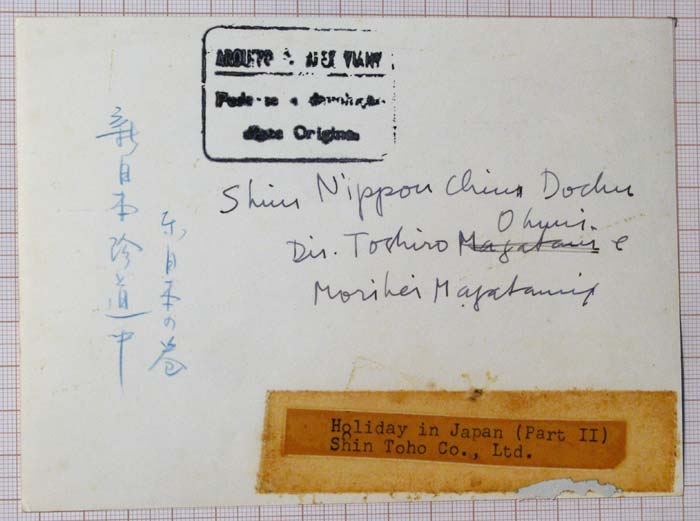 Pede-se a devolução
deste Original
新日本珍道中
東日本の巻
Shin Nippon Chin Dochu
Ohmi.
Dir. Toshiro Magatani e
Morihei Magatani
Holiday in Japan (Part II)
Shin Toho Co., Ltd.